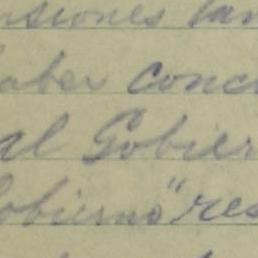 nsiones tan
haber conc
al Gobier
Gobierno" res